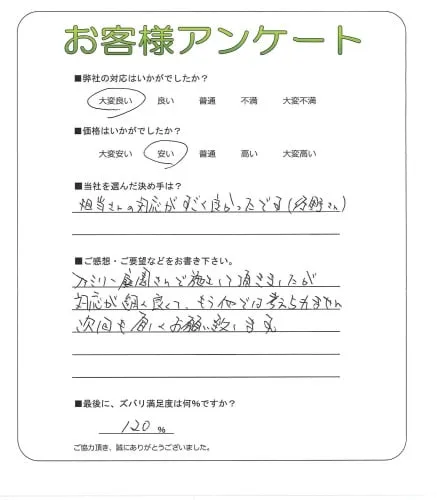 お客様アンケート
■弊社の対応はいかがでしたか?
大変良い 良い 普通 不満 大変不満
■価格はいかがでしたか?
大変安い 安い 普通 高い 大変高い
■当社を選んだ決め手は?
担当さんの対応がすごく良かったです(さん)
■ご感想・ご要望などをお書き下さい。
ファミリー庭園さんで施工して頂きましたが
対応が良くて、もう他では考えられません
次回も宜しくお願い致します
■最後に、ズバリ満足度は何%ですか?
120 %
ご協力頂き、誠にありがとうございました。